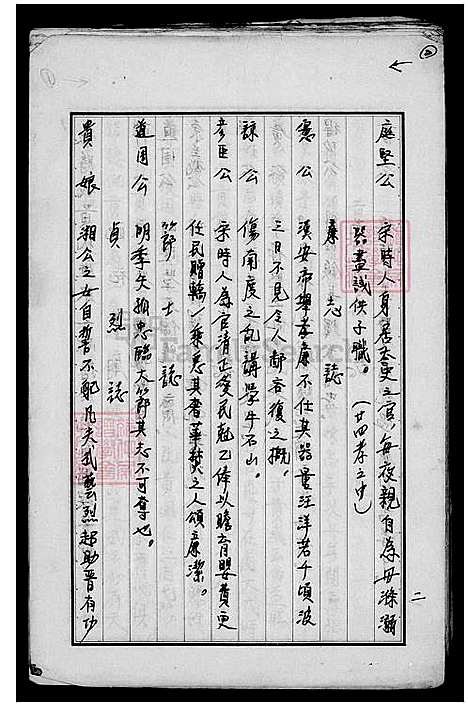 庭堅公 宋時人身居太史之官，每夜親自為母滌溺
器盡誠供子職。(廿四孝之中)
廉志誌
憲公 漢安帝舉孝廉不仕其器量汪洋若千頃波
三日不見令人鄙吝復之概。
諒公 傷南度之亂講學牛石山。
彥臣公 宋時人為官清正愛民勉乙俸以贍育嬰費更
任民贈轎一乘惡其奢華焚之人頌廉潔。
節士誌
道周公 明季矢孤忠臨大節其志不可奪也。
貞烈誌
貴娘 湘公之女自誓不配凡夫武藝烈超助晋有功
二